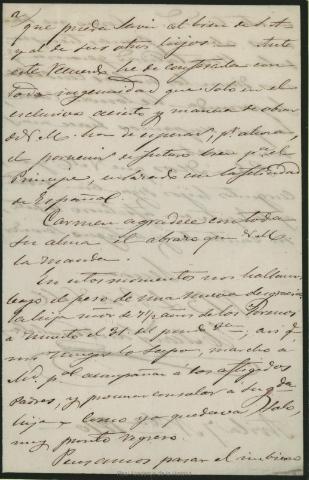 que pueda servir al bien de S. A.
y al de sus otros hijos. Ante
este recuerdo, he de confesarla con
toda ingenuidad que solo en el
exclusivo acierto y manera de obrar
de V. M. han de esperar, p.r ahora,
el porvenir y futuro bien p.a el
Príncipe, enlazado con la felicidad
de España.
Carmen agradece con toda
su alma el abrazo que V. M.
la manda.
En estos momentos nos hallamos
bajo el peso de una nueva desgracia
la hija mor de 7½ años de los
a muerto el 31. del
mis lo supo, marcho a
Md. p.a acompañar a los afligidos
Padres, y procurar consolar a su q.da
hija y como yo quedaba solo,
muy pronto regreso.
Pensamos pasar el invierno